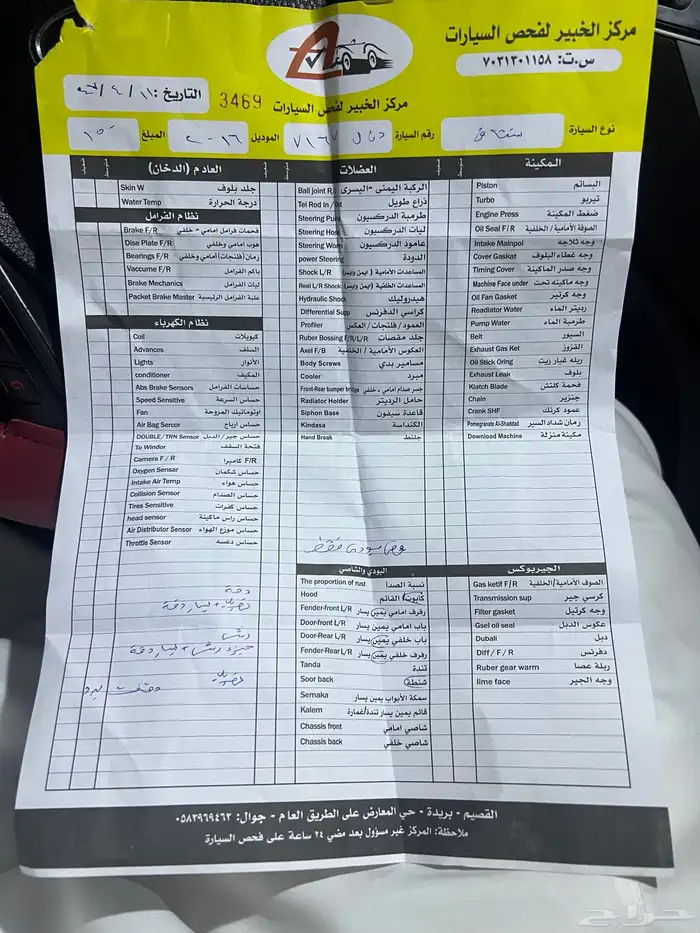 مركز الخبير لفحص السيارات
س.ت: ٧٠٣١٣٠١١٥٨
مركز الخبير لفحص السيارات
3469
التاريخ:
نوع السيارة
رقم السيارة
٧١٦٧
الموديل ٢٠١٦
المبلغ
المكينة
Piston البساتم
Turbo تيربو
Engine Press ضغط المكينة
Oil Seal F/R الصوفة الأمامية / الخلفية
Intake Mainpol وجه ثلاجه
Cover Gaskat وجه غطاء البلوف
Timing Cover وجه صدر الماكينة
Machine Face under وجه ماكينه تحت
Oil Fan Gasket وجه كرتير
Readiator Water رديتر الماء
Pump Water طرمبة الماء
Belt السيور
Exhaust Gas Ket القزوز
Oil Stick Oring ريله غيار زيت
Exhaust Leak بلوف
Klatch Blade فحمة كلتش
Chain جنزير
Crank SHF عمود كرنك
Pomegranate Al-Shaddad رمان شداد السير
Download Machine مكينة منزلة
العضلات
Ball joint R/ الركبة اليمنى - اليسرى
Tel Rod In / ذراع طويل
Steering Pum طرمبة الدركسيون
Steering Hose ليات الدركسيون
Steering Worm عامود الدركسيون
power Steering الدودة
Shock L/R المساعدات الأمامية (ايمن وايسر)
Real L/R Shock المساعدات الخلفية (ايمن وايسر)
Hydraulic Shock هيدروليك
Differential Supp كراسي الدفرنس
Profiler العمود / فلنجات / العكس
Ruber Bossing F/R/L/R جلد مقصات
Axel F/B العكوس الأمامية / الخلفية
Body Screws مسامير بدي
Cooler مبرد
Front-Rear bumper bridge جسر صدام امامي - خلفي
Radiator Holder حامل الرديتر
Siphon Base قاعدة سيفون
Kindasa الكنداسة
Hand Break جلنط
العادم (الدخان)
Skin W جلد بلوف
Water Temp درجة الحرارة
نظام الفرامل
Brake F/R فحمات فرامل امامي - خلفي
Dise Plate F/R هوب امامي وخلفي
Bearings F/R رمان (فلنجات) أمامي وخلفي
Vaccume F/R باكم الفرامل
Brake Mechanics ليات الفرامل
Packet Brake Master علبة الفرامل الرئيسية
نظام الكهرباء
Coil كويلات
Advances السلف
Lights الأنوار
conditioner المكيف
Abs Brake Sensors حساسات الفرامل
Speed Sensitive حساس السرعة
Fan اوتوماتيك المروحة
Air Bag Sercor حساس ارباج
DOUBLE/TRN Sensor حساس جير / الدبل
To Windor فتحة السقف
Camera F / R كاميرا F/R
Oxygen Sensar حساس شكمان
Intake Air Temp حساس هواء
Collision Sensor حساس الصدام
Tires Sensitive حساس كفرات
head sensor حساس راس ماكينة
Air Distributor Sensor حساس موزع الهواء
Throttle Sensor حساس دعسه
فحص بودي فقط
الجيربوكس
Gas ketif F/R الصوف الأمامية/الخلفية
Transmission sup كرسي جير
Filter gasket وجه كرتيل
Gsel oil seal عكوس الدبل
Duball دبل
Diff / F / R دفرنس
Ruber gear warm ريلة عصا
lime face وجه الجير
البودي والشاصي
The proportion of rust نسبة الصدا
Hood كابوت القائم
Fender-front L/R رفرف امامي يمين يسار
Door-front L/R باب امامي يمين يسار
Door-Rear L/R باب خلفي يمين يسار
Fender-Rear L/R رفرف خلفي يمين يسار
Tanda تندة
Soor back شنطة
Semaka سمكة الأبواب يمين يسار
Kalem قائم يمين يسار تندة/غمارة
Chassis front شاصي امامي
Chassis back شاصي خلفي
القصيم - بريدة - حي المعارض على الطريق العام - جوال: ٠٥٨٣٩٦٩٤٦٢
ملاحظة: المركز غير مسؤول بعد مضي ٢٤ ساعة على فحص السيارة
حراج